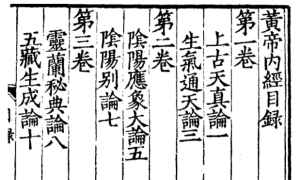 黃帝內經目録
第一卷
上古天真論一
生氣通天論三
第二卷
陰陽應象大論五
陰陽别論七
第三卷
靈蘭秘典論八
五藏生成論十
目録